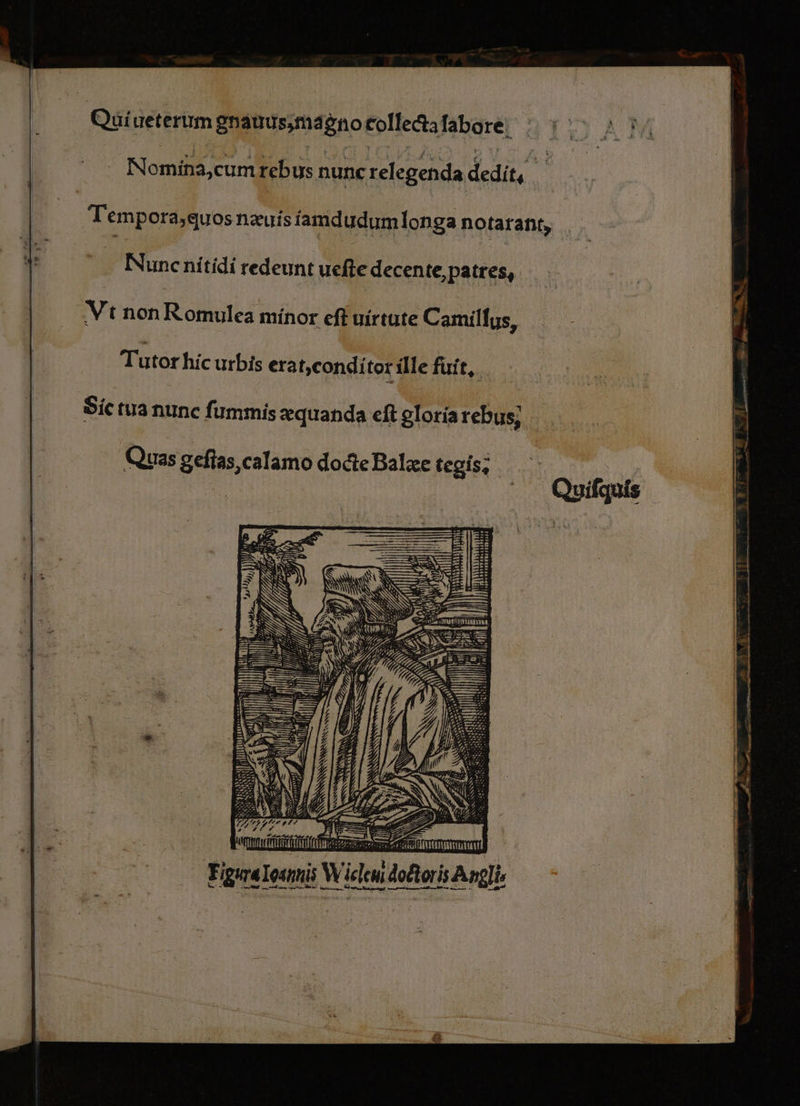 Qui ueterum gnauus, magno collecta labore
Nomina, cum rebus nunc relegenda dedit,
Tempora, quos næuis iamdudum longa notarant,
Nunc nitidi redeunt ueſte decente, patres,
Vt non Romulea minor eſt uirtute Camillus,
Tutor hic urbis erat, conditor ille fuit,
Sic tua nunc ſummis æquanda eſt gloria rebus,
Quas geſtas, calamo docte Balæe tegis;
Quiſquis
Figura Ioannis Wicleui doctoris Angli.